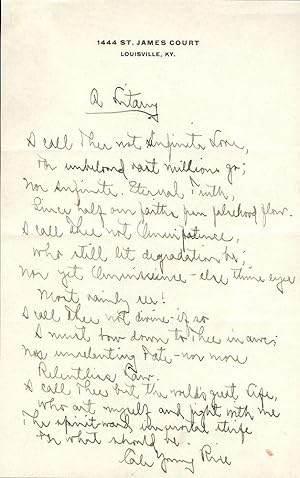 1444 ST. JAMES COURT
LOUISVILLE, KY.
A Litany
I call Thee not Infinite Love,
Or unbeloved vast millions go;
Nor Infinite, Eternal Truth,
Since half our faiths from falsehood flow.
I call Thee not Omnipotence,
Who still let degradation be;
Nor yet Omniscience – else thine eyes
Most vainly see!
I call Thee not divine – if so
I must bow down to Thee in awe;
Nor unrelenting Fate – nor more
Relentless Law.
I call Thee but the world's great Life,
Who art myself and fight with me
The spirit-ward immortal strife
For what should be.
Cale Young Rice